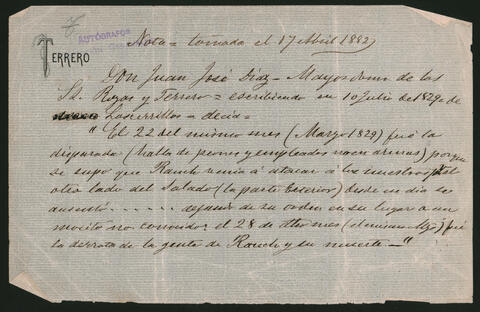 AUTÓGRAFOS
TERRERO
Nota = tomada el 17 Abril 1882
Don Juan José Díaz - Mayordomo de los
Sres. Rozas y Terrero = escribiendo en 10 Julio de 1829 = de
Los Cerrillos = decia =
"El 22 del mismo mes (Marzo 1829) fué la
disparada (habla de peones y empleados
se supo que Rauch venia á atacar á los nuestros al
otro lado del Salado (la parte Exterior) desde ese día se
ausentó ...... dejando de su orden en su lugar a un
mocito no conocido: el 28 de dho mes (el mismo Mzo) fué
la derrota de la gente de Rauch y su muerte - "